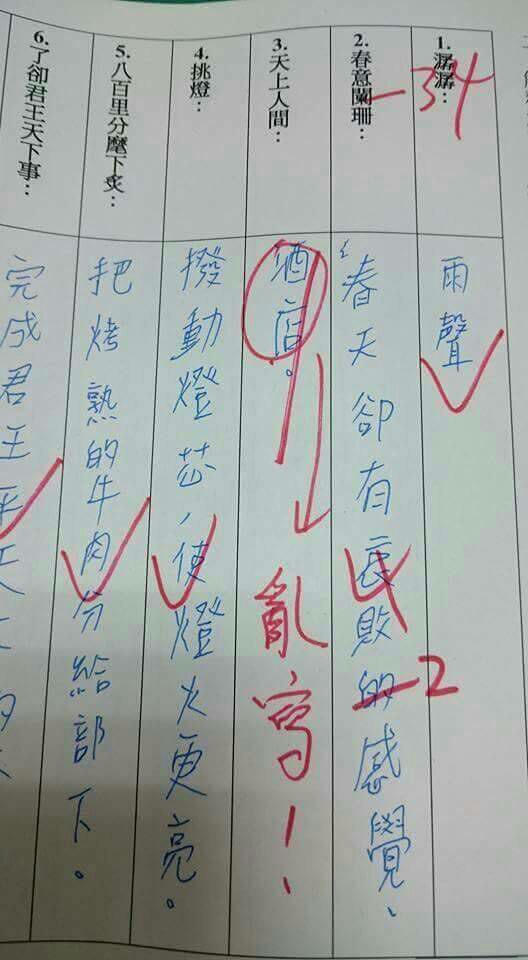 1. 潺潺：
-34
雨聲
2. 春意闌珊：
春天卻有衰敗的感覺、
-2
3. 天上人間：
酒店。
亂寫！
4. 挑燈：
撥動燈芯，使燈火更亮。
5. 八百里分麾下炙：
把烤熟的牛肉分給部下。
6. 了卻君王天下事：
完成君王平天下的